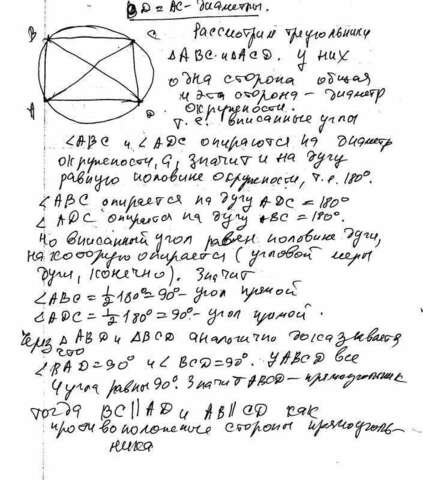 BD = AC - диаметры.
B
C
A
D
Рассмотрим треугольники
△ABC и △ACD. У них
одна сторона общая
и эта сторона - диаметр
окружности.
т.е. вписанные углы
∠ABC и ∠ADC опираются на диаметр
окружности, а, значит и на дугу
равную половине окружности, т.е. 180°.
∠ABC опирается на дугу ADC = 180°
∠ADC опирается на дугу ABC = 180°.
Но вписанный угол равен половине дуги,
на которую опирается (угловой меры
дуги, конечно). Значит
∠ABC = 1/2 180° = 90° - угол прямой
∠ADC = 1/2 180° = 90° - угол прямой.
Через △ABD и △BCD аналогично доказывается
что
∠BAD = 90° и ∠BCD = 90°. У ABCD все
4 угла равны 90°. Значит ABCD - прямоугольник
тогда BC || AD и AB || CD как
противоположные стороны прямоуголь-
ника